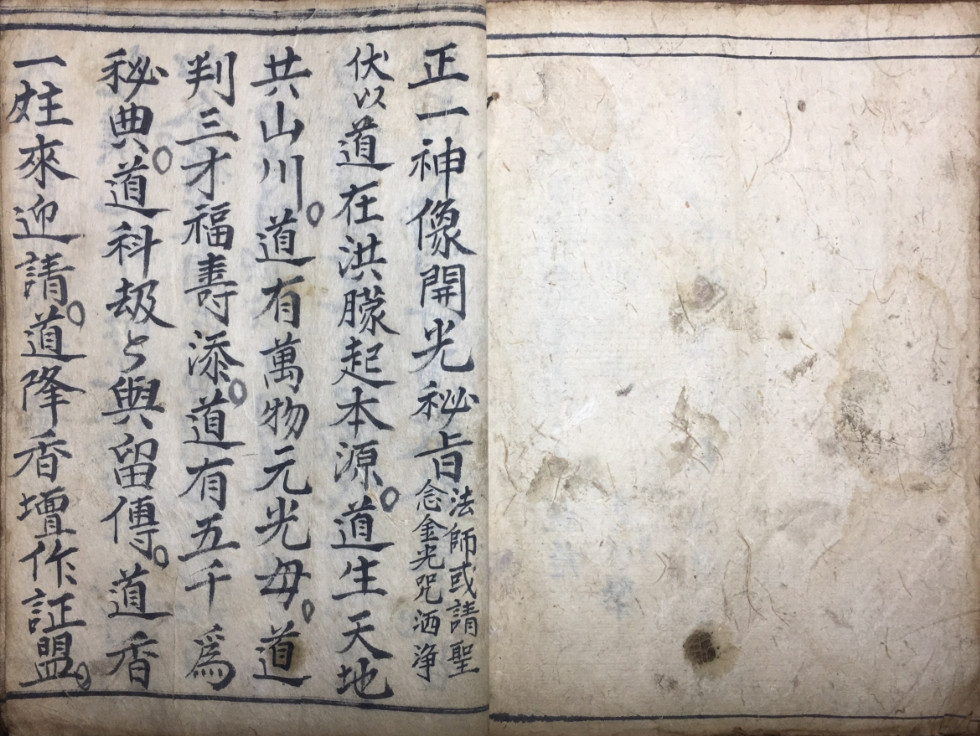 正一神像開光秘旨 法師或請聖
念金光咒洒淨
伏以道在洪朦起本源。道生天地
共山川。道有萬物元光母。道
判三才福壽添。道有五千為
秘典。道科劫々與留傳。道香
一炷來迎請。道降香壇作証盟。